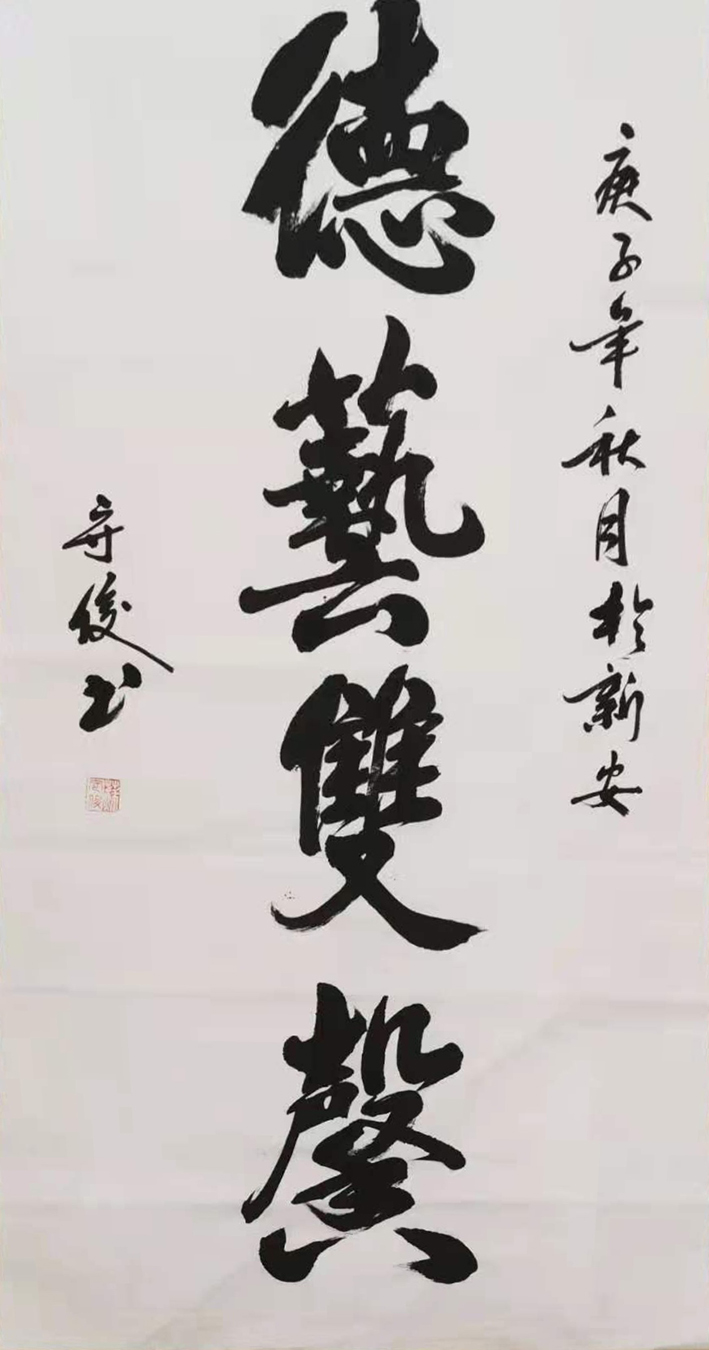 庚子年秋月於新安
德藝雙馨
守俊书